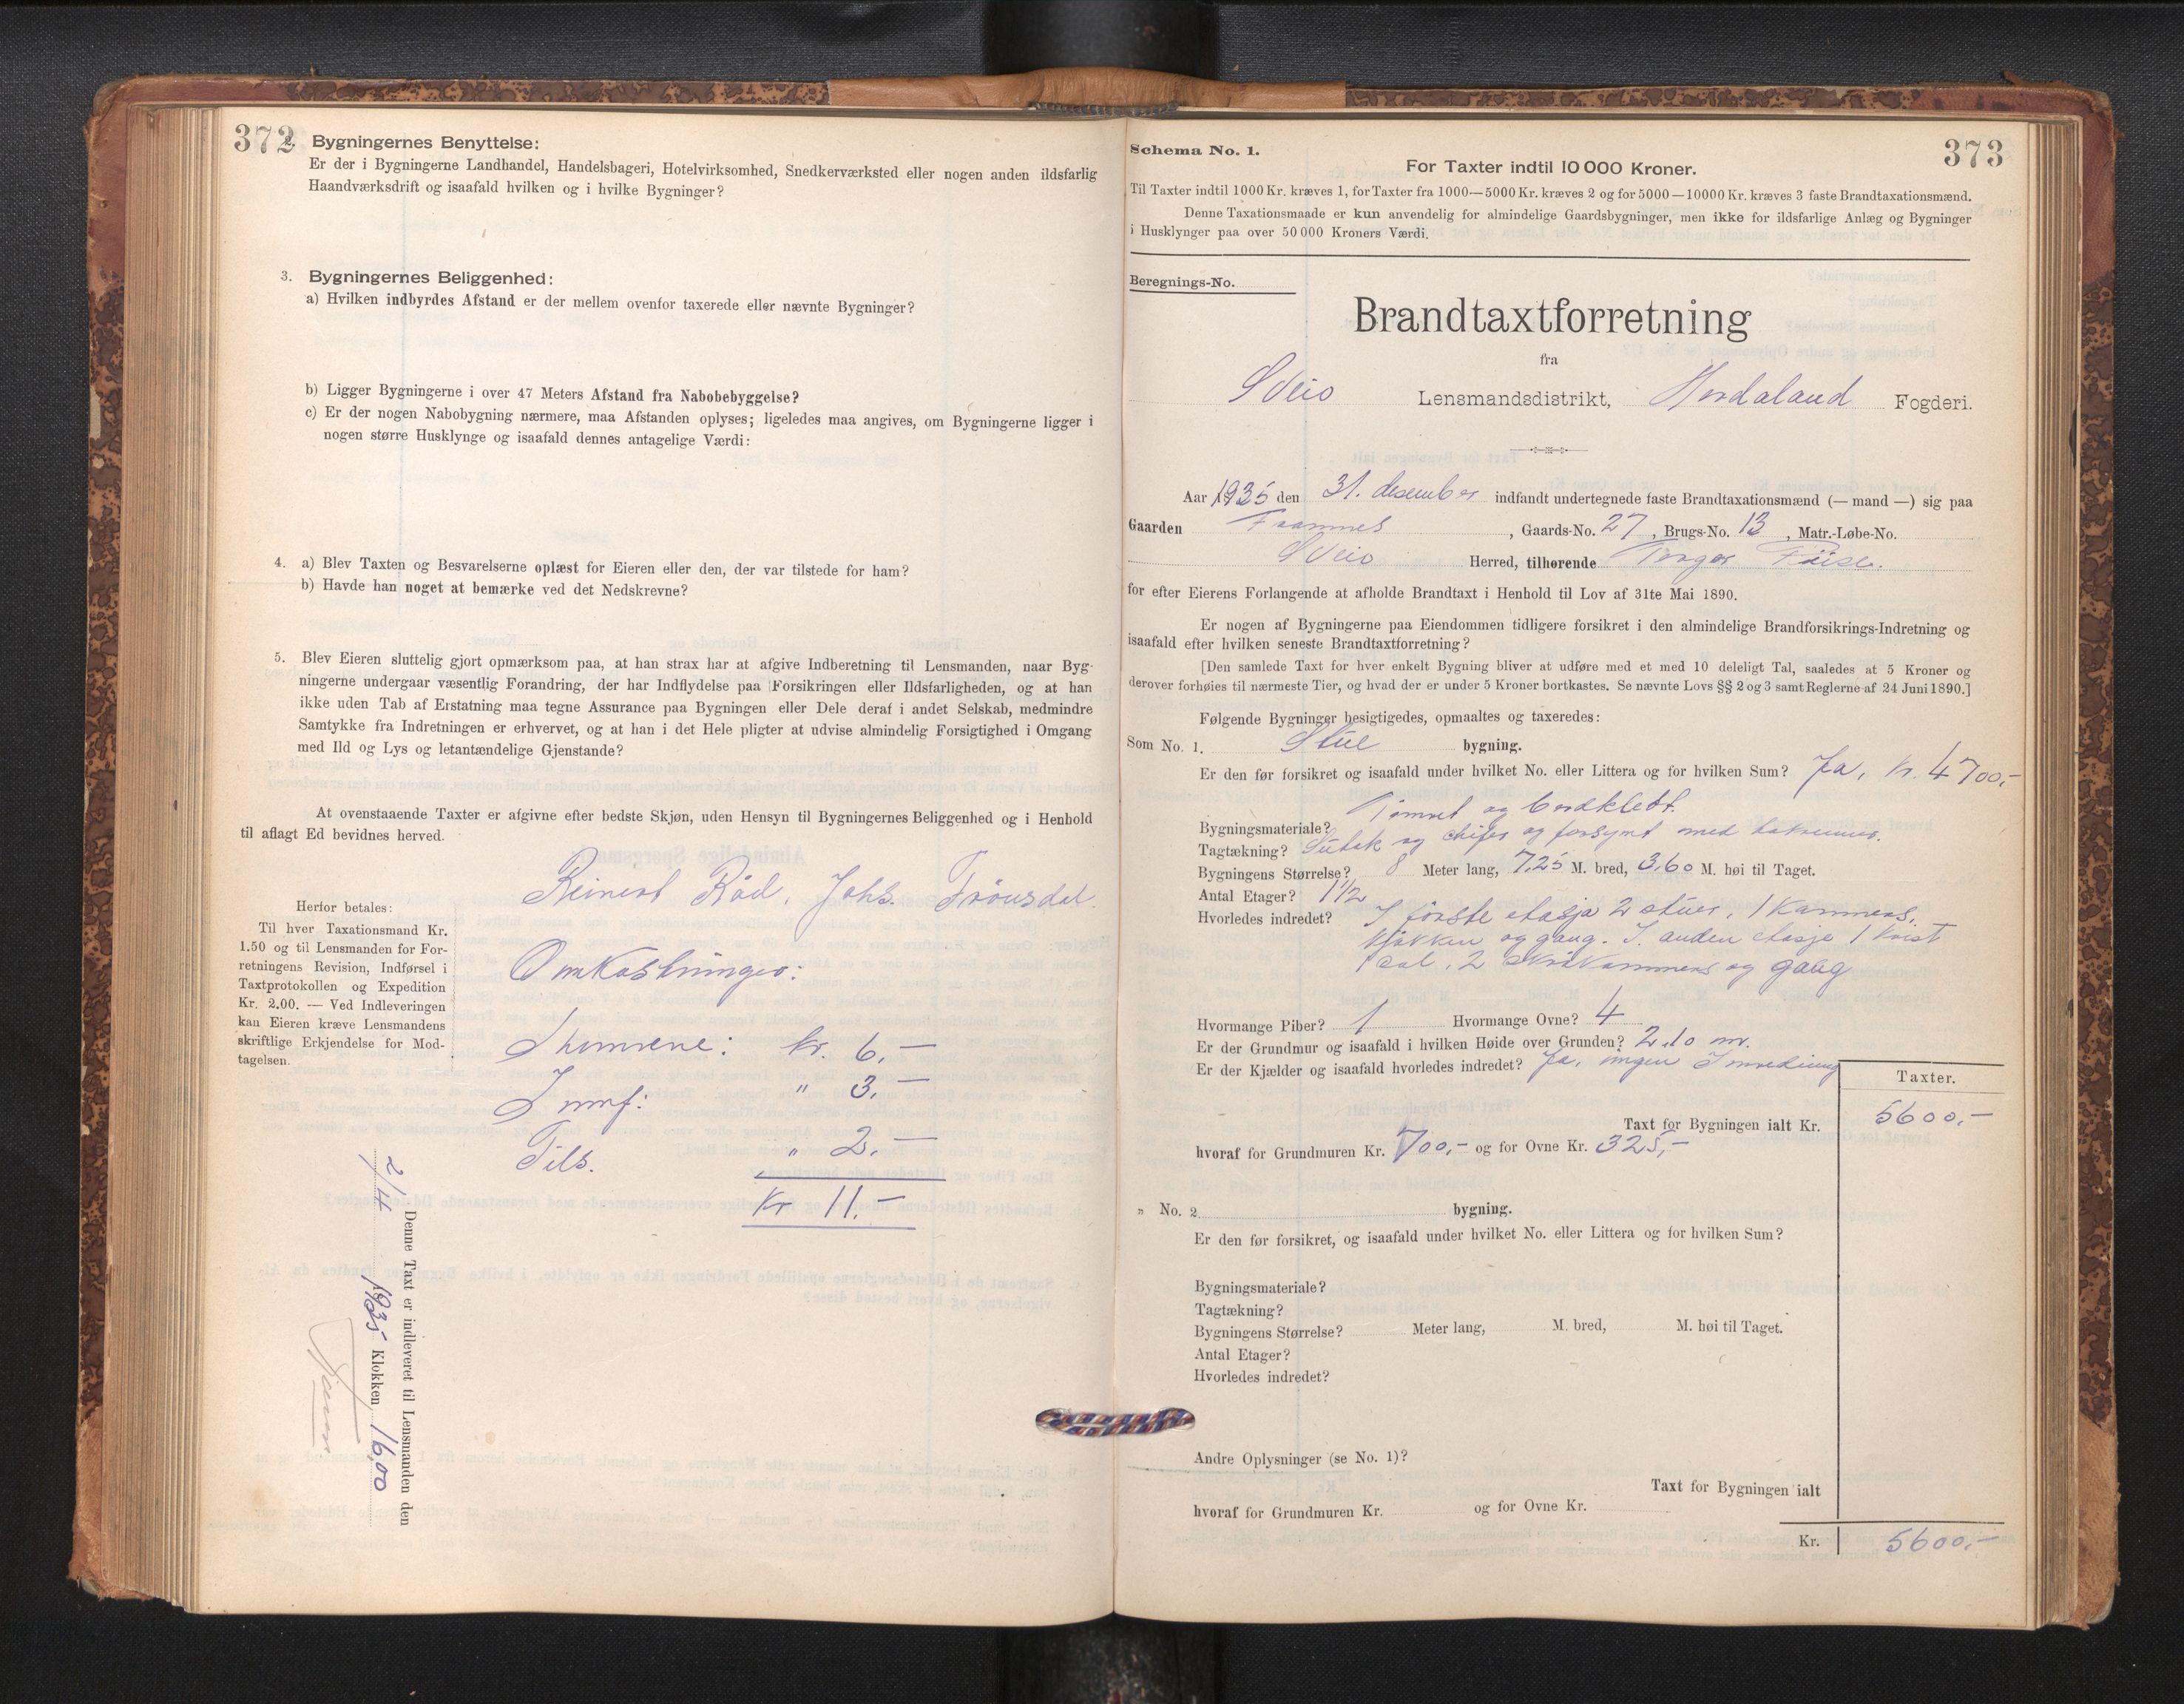 372
2. Bygningernes Benyttelse:
Er der i Bygningerne Landhandel, Handelsbageri, Hotelvirksomhed, Snedkerværksted eller nogen anden ildsfarlig
Haandværksdrift og isaafald hvilken og i hvilke Bygninger?
3. Bygningernes Beliggenhed:
a) Hvilken indbyrdes Afstand er der mellem ovenfor taxerede eller nævnte Bygninger?
b) Ligger Bygningerne i over 47 Meters Afstand fra Nabobebyggelse?
c) Er der nogen Nabobygning nærmere, maa Afstanden oplyses; ligeledes maa angives, om Bygningerne ligger i
nogen større Husklynge og isaafald dennes antagelige Værdi:
4. a) Blev Taxten og Besvarelserne oplæst for Eieren eller den, der var tilstede for ham?
b) Havde han noget at bemærke ved det Nedskrevne?
5. Blev Eieren sluttelig gjort opmærksom paa, at han strax har at afgive Indberetning til Lensmanden, naar Byg-
ningerne undergaar væsentlig Forandring, der har Indflydelse paa Forsikringen eller Ildsfarligheden, og at han
ikke uden Tab af Erstatning maa tegne Assurance paa Bygningen eller Dele deraf i andet Selskab, medmindre
Samtykke fra Indretningen er erhvervet, og at han i det Hele pligter at udvise almindelig Forsigtighed i Omgang
med Ild og Lys og letantændelige Gjenstande?
At ovenstaaende Taxter er afgivne efter bedste Skjøn, uden Hensyn til Bygningernes Beliggenhed og i Henhold
til aflagt Ed bevidnes herved.
Reinert Råd, Johs.
Herfor betales:
Til hver Taxationsmand Kr.
1.50 og til Lensmanden for For-
retningens Revision, Indførsel i
Taxtprotokollen og Expedition
Kr. 2.00. — Ved Indleveringen
kan Eieren kræve Lensmandens
skriftlige Erkjendelse for Mod-
tagelsen.
Omkostninger:
Skjønnene: kr. 6,-
Innf: " 3,-
Tils. " 2,-
Kr 11.-
Denne Taxt er indleveret til Lensmanden den
2/4 1935 Klokken 16,00
Schema No. 1.
373
For Taxter indtil 10 000 Kroner.
Til Taxter indtil 1000 Kr. kræves 1, for Taxter fra 1000—5000 Kr. kræves 2 og for 5000—10000 Kr. kræves 3 faste Brandtaxationsmænd.
Denne Taxationsmaade er kun anvendelig for almindelige Gaardsbygninger, men ikke for ildsfarlige Anlæg og Bygninger
i Husklynger paa over 50 000 Kroners Værdi.
Beregnings-No.
Brandtaxtforretning
fra
Sveio Lensmandsdistrikt, Hordaland Fogderi.
Aar 1935 den 31. desember indfandt undertegnede faste Brandtaxationsmænd (— mand —) sig paa
Gaarden , Gaards-No. 27, Brugs-No. 13, Matr.-Løbe-No.
Sveio Herred, tilhørende Torger
for efter Eierens Forlangende at afholde Brandtaxt i Henhold til Lov af 31te Mai 1890.
Er nogen af Bygningerne paa Eiendommen tidligere forsikret i den almindelige Brandforsikrings-Indretning og
isaafald efter hvilken seneste Brandtaxtforretning?
[Den samlede Taxt for hver enkelt Bygning bliver at udføre med et med 10 deleligt Tal, saaledes at 5 Kroner og
derover forhøies til nærmeste Tier, og hvad der er under 5 Kroner bortkastes. Se nævnte Lovs §§ 2 og 3 samt Reglerne af 24 Juni 1890.]
Følgende Bygninger besigtigedes, opmaaltes og taxeredes:
Som No. 1. Stue bygning.
Er den før forsikret og isaafald under hvilket No. eller Littera og for hvilken Sum? Ja, kr. 4700,-
Bygningsmateriale? Tømret og bordkledt.
Tagtækning? Sutak og skifer og forsynt med takrenner.
Bygningens Størrelse? 8 Meter lang, 7,25 M. bred, 3,60 M. høi til Taget.
Antal Etager? 1 1/2
Hvorledes indredet? I første etasje 2 stuer, 1 kammers,
kjøkken og gang. I anden etasje 1 kvist
sal, 2 skråkammers og gang
Hvormange Piber? 1 Hvormange Ovne? 4
Er der Grundmur og isaafald i hvilken Høide over Grunden? 2,10 m.
Er der Kjælder og isaafald hvorledes indredet? Ja, ingen Innredning
Taxter.
Taxt for Bygningen ialt Kr. 5600,-
hvoraf for Grundmuren Kr. 700,- og for Ovne Kr. 325,-
" No. 2 bygning.
Er den før forsikret, og isaafald under hvilket No. eller Littera og for hvilken Sum?
Bygningsmateriale?
Tagtækning?
Bygningens Størrelse? Meter lang, M. bred, M. høi til Taget.
Antal Etager?
Hvorledes indredet?
Andre Oplysninger (se No. 1)?
Taxt for Bygningen ialt
hvoraf for Grundmuren Kr. og for Ovne Kr.
Kr. 5600,-